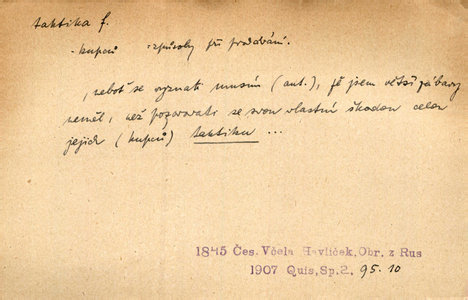 taktika f.
- kupců - způsoby při prodávání.
, neboť se vyznati musím (aut.), že jsem větší zábavy
neměl, než pozorovati se svou vlastní škodou celou
jejich (kupců) taktiku ...
1845 Čes. Včela Havlíček, Obr. z Rus
1907 Quis, Sp. 2, 95.10